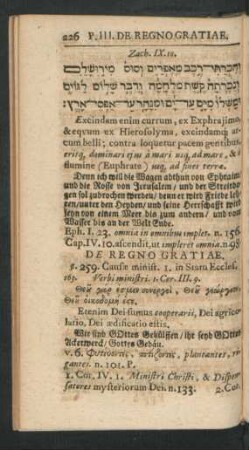 226 P. III. DE REGNO GRATIAE,
Zach. IX. 10.
והכרתי רכב מאפרים וסוס מירושלם
ונכרתה קשת מלחמה ודבר שלום לגוים
ומשלו מים עד ים ומנהר עד אפסי ארץ:
Excindam enim currum, ex Exphrajimo,
& eqvum ex Hierosolyma, excindamq; ar-
cum belli; contra loquetur pacem gentibus,
eritq; dominari ejus a mari usq; ad mare, & a
flumine (Euphrate) usq; ad fines terrae.
Denn ich will die Wagen abthun von Ephraim
und die Rosse von Jerusalem/ und der Streitbo-
gen sol zubrochen werden/ denn er wird Friede leh-
ren/ unter den Heyden/ und seine Herrschafft wird
seyn von einem Meer bis zum andern/ und vom
Wasser bis an der Welt Ende.
Eph. I. 23. omnia in omnibus implet. n. 156
Cap. IV. 10. ascendit, ut impleret omnia. n. 95
DE REGNO GRATIAE,
§. 259. Causae minist. 1. in Statu Eccles.
Verbi ministri. 1. Cor. III. 9.
Θεῦ γάρ ἐσμεν συνεργοί, Θεῦ γεώργιον,
Θεῦ οἰκοδομή ἐςε.
Etenim Dei sumus cooperarii, Dei agricul-
tura, Dei aedificatio estis.
Wir sind Gottes Gehülffen/ ihr seyd Gottes
Ackerwerck/ Gottes Gebäu.
v. 6. Φυτεύοντες, ποτίζοντες, plantantes, ri-
gantes. n. 201. P.
1. Cor. IV. 1. Ministri Christi, & Dispen-
satores mysteriorum Dei. n. 133.
2. Cor.